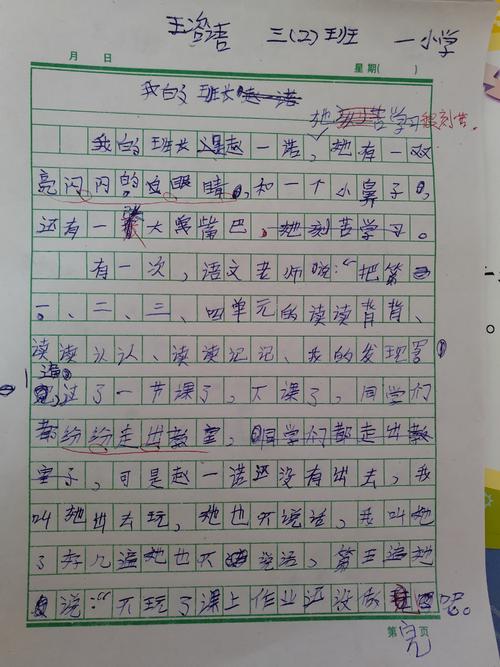 王咨语 三(2)班 一小学
月 日 星期( )
我的班长赵一诺
她刻苦学习很刻苦。
我的班长是赵一诺，她有一双
亮闪闪的眼睛，和一个小鼻子，
还有一张大嘴巴，她刻苦学习。
有一次，语文老师说：“把第
一、二、三、四单元的读读背背、
读读认认、读读记记、我的发现写
一遍。”
过了一节课了，下课了，同学们
都纷纷走出教室，同学们都走出教
室了，可是赵一诺还没有出去，我
叫她出去玩，她也不说话，我叫她
了好几遍她也不说话，第三遍她
说：“不玩了课上作业还没做完呢。
第 页
完